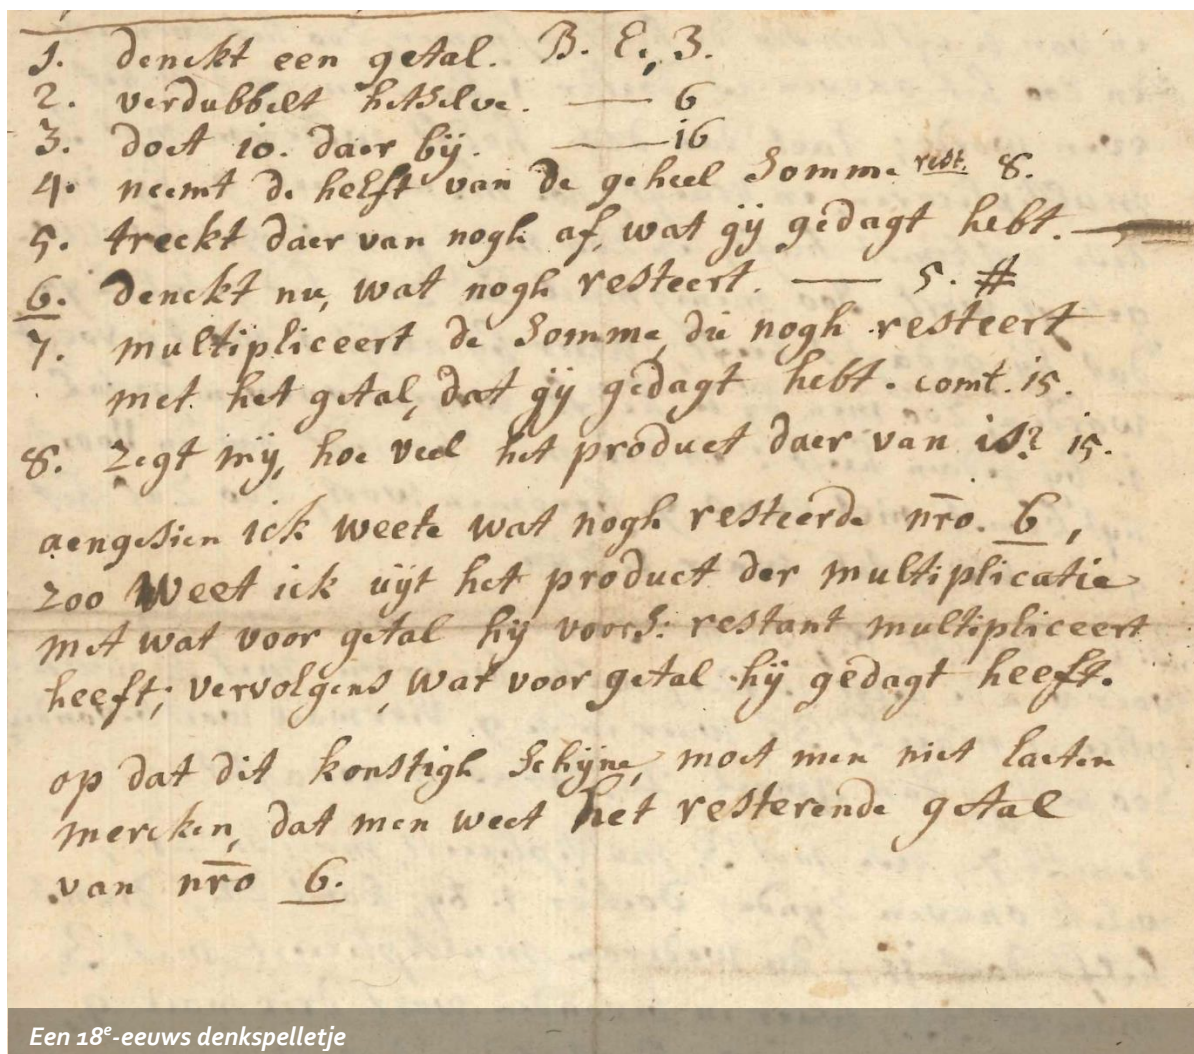 1. denckt een getal. B. E., 3.
2. verdubbelt hetselve. — 6
3. doet io. daer bij. — i6
4. neemt de helft van de geheel somme rest. 8.
5. treckt daer van nogh af, wat gij gedagt hebt. —
6. denckt nu, wat nogh resteert. — 5. #
7. multipliceert de somme, die nogh resteert
met het getal, dat gij gedagt hebt. comt. i5.
8. zegt mij, hoe veel het product daer van is? i5.
aengesien ick weete wat nogh resteerde nro. 6,
zoo weet ick uijt het product der multiplicatie
met wat voor getal hij voors: restant multipliceert
heeft; vervolgens, wat voor getal hij gedagt heeft.
op dat dit konstigh schijne, moet men niet laeten
mercken, dat men weet het resterende getal
van nro 6.
Een 18e-eeuws denkspelletje